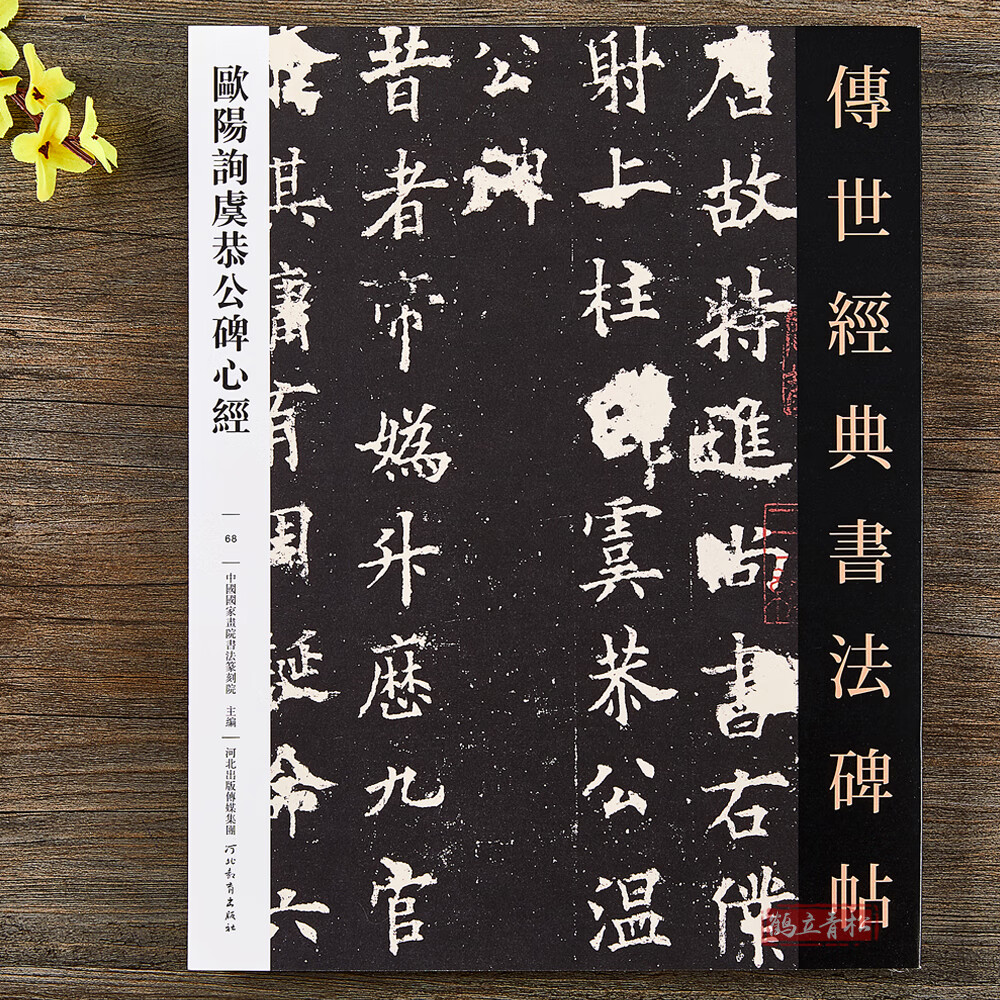 傳世經典書法碑帖
唐故特進尚書右僕
射上柱國虞恭公温
公碑
昔者帝嬀升歷九官
其庸育用誕命六
歐陽詢虞恭公碑心經
68
中國國家畫院書法篆刻院 主編
河北出版傳媒集團
河北教育出版社
鹤立青松